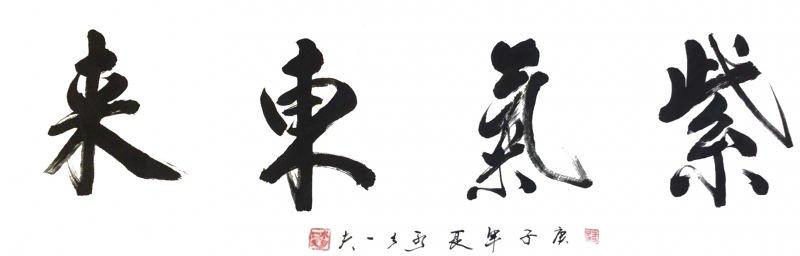 紫氣東来
庚子年夏